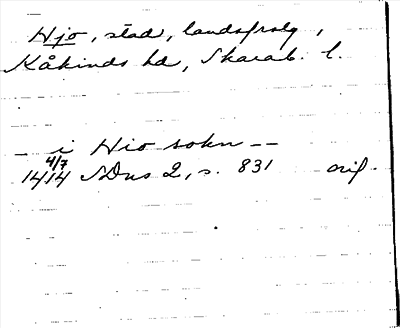 Hjo, stad, landsförs,
Kåkinds hd, Skarab. l.
– i Hio sokn – –
4/7
1414 SDns 2, s. 831 orig.